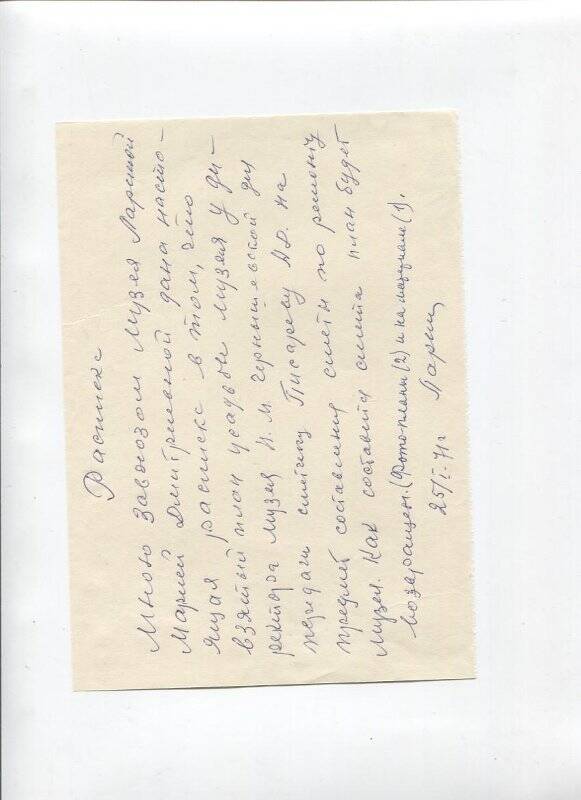 Расписка
Мною Завхозом Музея Лариной
Марией Дмитриевной дана насто-
ящая расписка в том, что
взятый план усадьбы музея у ди-
ректора музея Н. М. Чернышевской для
передачи сметчику Писареву А.Д. на
предмет составления сметы по ремонту
Музея. Как составится смета план будет
возвращен. (Фото-планы (2) и на (1).
25/I-71 г Ларин